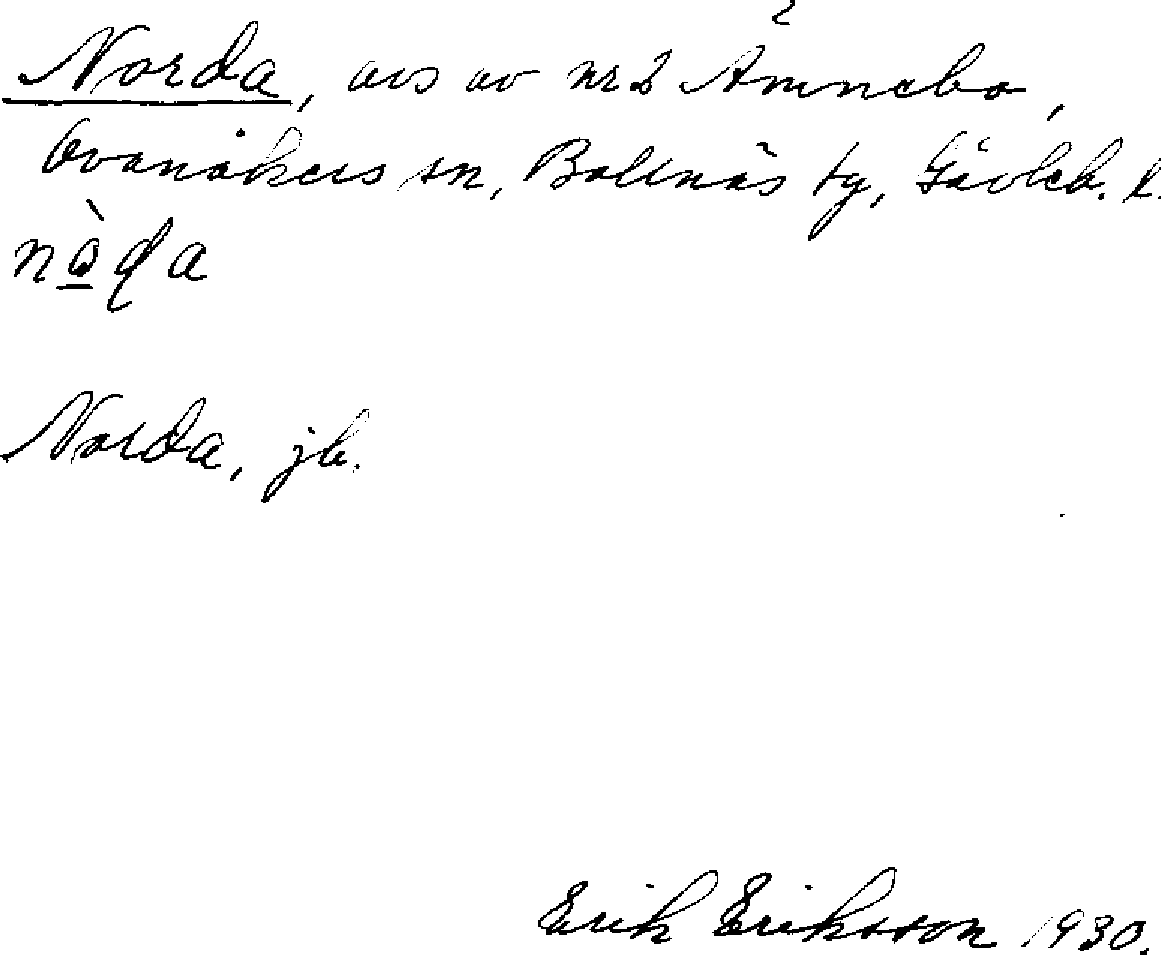 Norda, avs av nr 2 Ämnebo,
Ovanåkers sn, Bollnäs tg, Gävleb. l.
nò̲ɖa
Norda, jb.
Erik Eriksson 1930.